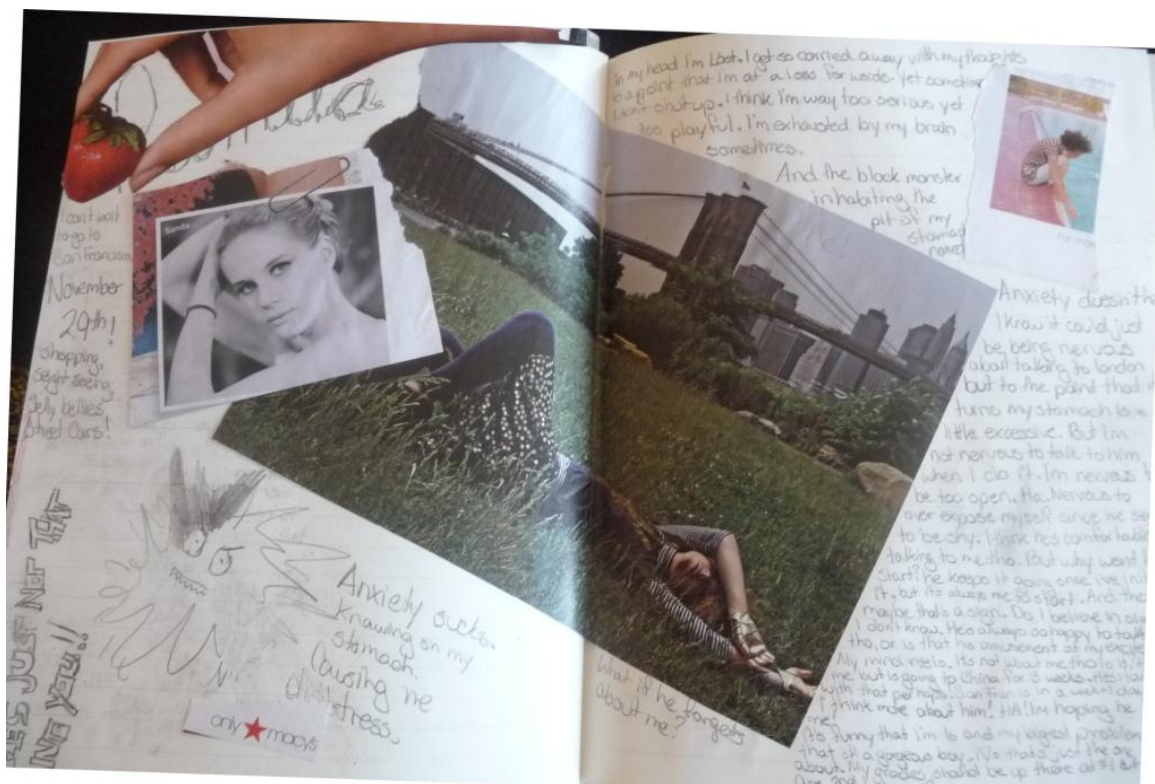 I can't wait
to go to
San Francisco
November
29th!
shopping,
seight seeing,
Jelly bellies,
street cars!
Sanda
HE'S JUST NOT THAT
INTO YOU!!
Anxiety sucks.
Knawing on my
stomach.
Causing me
distress.
only macys
In my head I'm Lost. I get so carried away with my thoughts
to a point that I'm at a loss for words. Yet sometimes
I don't shut up. I think I'm way too serious yet
too playful. I'm exhausted by my brain
sometimes.
And the black monster
inhabiting the
pit of my
stomach
named
Anxiety doesn't
I know it could just
be being nervous
about talking to london
but to the point that it
turns my stomach is a
little excessive. But I'm
not nervous to talk to him
when I do it. I'm nervous to
be too open. Ha. Nervous to
over expose myself since he
to be shy. I think he's comfortable
talking to me tho. But why won't
start? he keeps it going once I've
it, but its always me to start. And then
maybe that's a sign. Do I believe in
I don't know. He's always so happy to talk
tho, or is that his amusement at my
My mind reels. It's not about me tho
me but is going to China for 3 weeks.
with that perhaps San Fran is in a week
I think more about him! HA! I'm hoping he
me!
It's funny that I'm 16 and my biggest problem
that of a gorgeous boy. No that's just the one
about. My grades should be up there at #1 but
are 2nd
What if he forgets
about me?